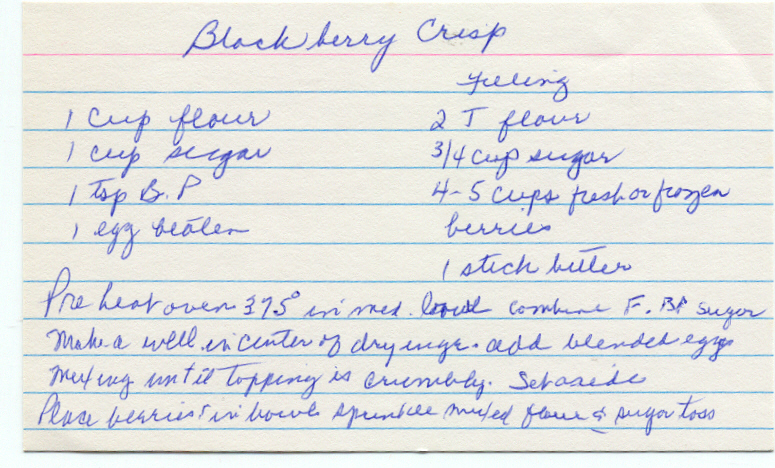 Blackberry Crisp
Filling
1 cup flour
1 cup sugar
1 tsp B.P
1 egg beaten
2 T flour
3/4 cup sugar
4-5 cups fresh or frozen
berries
1 stick butter
Pre heat oven 375° in med. bowl combine F. BP sugar
Make a well in center of dry ingr. add blended eggs
mixing until topping is crumbly. Set aside
Place berries in bowl sprinkle mixed flour & sugar toss